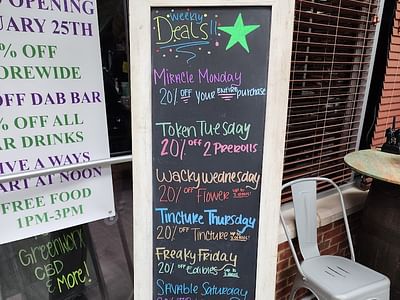 OPENING
UARY 25TH
% OFF
OREWIDE
OFF DAB BAR
% OFF ALL
AR DRINKS
IVE A WAYS
ART AT NOON
FREE FOOD
1PM-3PM
GreenWorx
CBD
& More!
Weekly
Deals!!
Miracle Monday
20% OFF your ENTIRE purchase
Token Tuesday
20% OFF 2 Prerolls
Wacky Wednesday
20% OFF Flower
Tincture Thursday
20% OFF Tincture
Freaky Friday
20% OFF Edibles
Savable Saturday